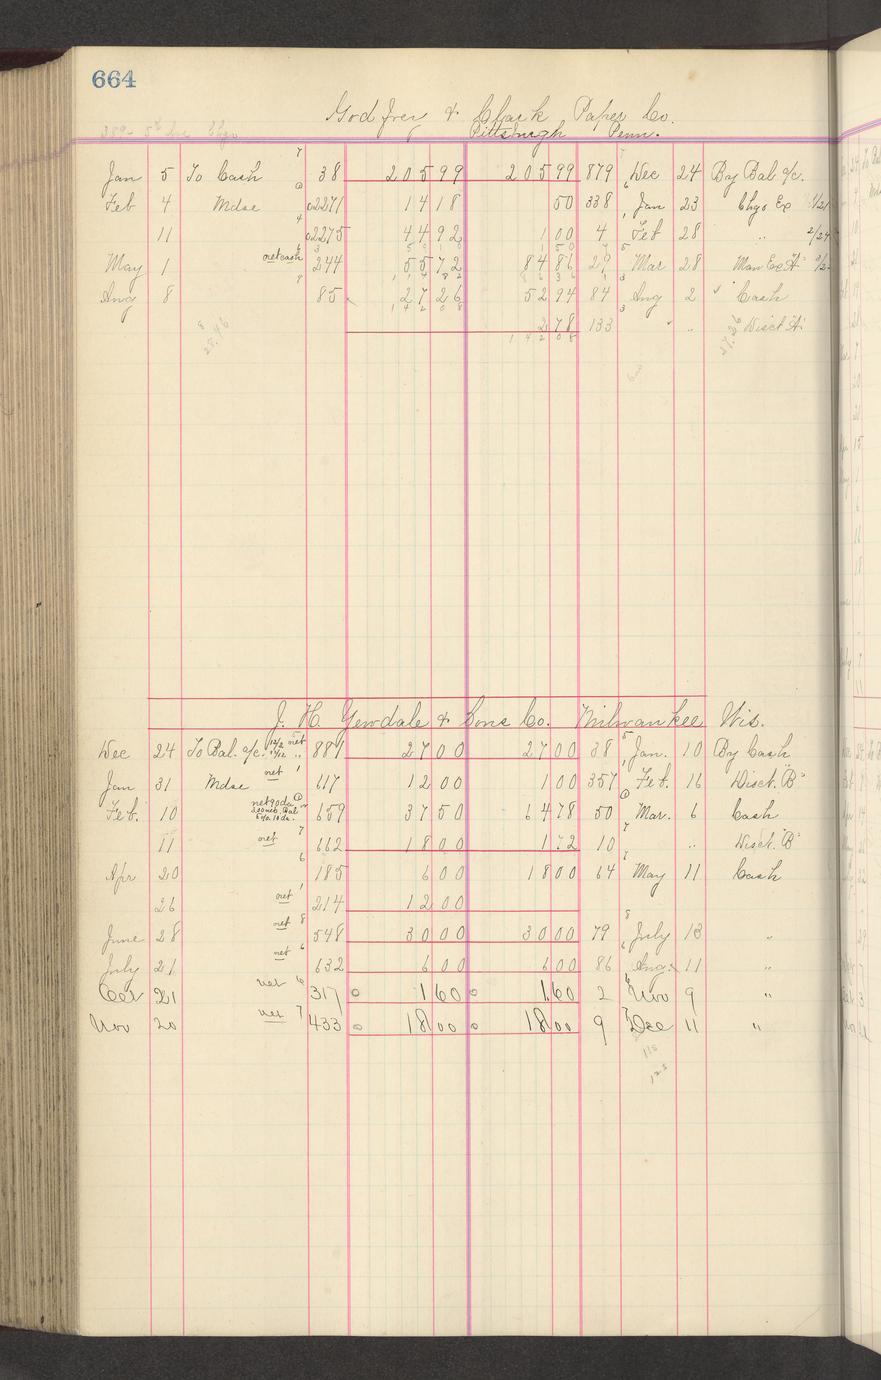 664
Godfrey & Clark Paper Co.
389- 5th Ave Chgo Pittsburgh Penn.
Jan 5 To Cash 38 205 99 205 99 879 Dec 24 By Bal a/c.
Feb 4 Mdse 02271 14 18 50 338 Jan 23 Chgo Ex 1/21
11 02275 44 92 1 00 4 Feb 28 " 2/24
59 10 1 50
May 1 net cash 244 55 72 84 86 29 Mar 28 Man Ex "A"
114 82 86 36
Aug 8 85 27 26 52 94 84 Aug 2 ✓ Cash
142 08
2 78 133 ✓ " Disct "A"
142 08
28.46 27.26
J. H. Yewdale & Sons Co. Milwaukee Wis.
Dec 24 To Bal. a/c. net 881 27 00 27 00 38 Jan. 10 By Cash
Jan 31 Mdse net 617 12 00 1 00 357 Feb. 16 Disct. "B"
Feb. 10 net 90 da 659 37 50 64 78 50 Mar. 6 Cash
11 net 662 18 00 1 72 10 " Disct. "B"
Apr 20 185 6 00 18 00 64 May 11 Cash
26 net 214 12 00
June 28 net 548 30 00 30 00 79 July 13 "
July 21 net 632 6 00 6 00 86 Aug. 11 "
Oct 21 net 317 1 60 1 60 2 Nov 9 "
Nov 20 net 433 18 00 18 00 9 Dec 11 "
115
125